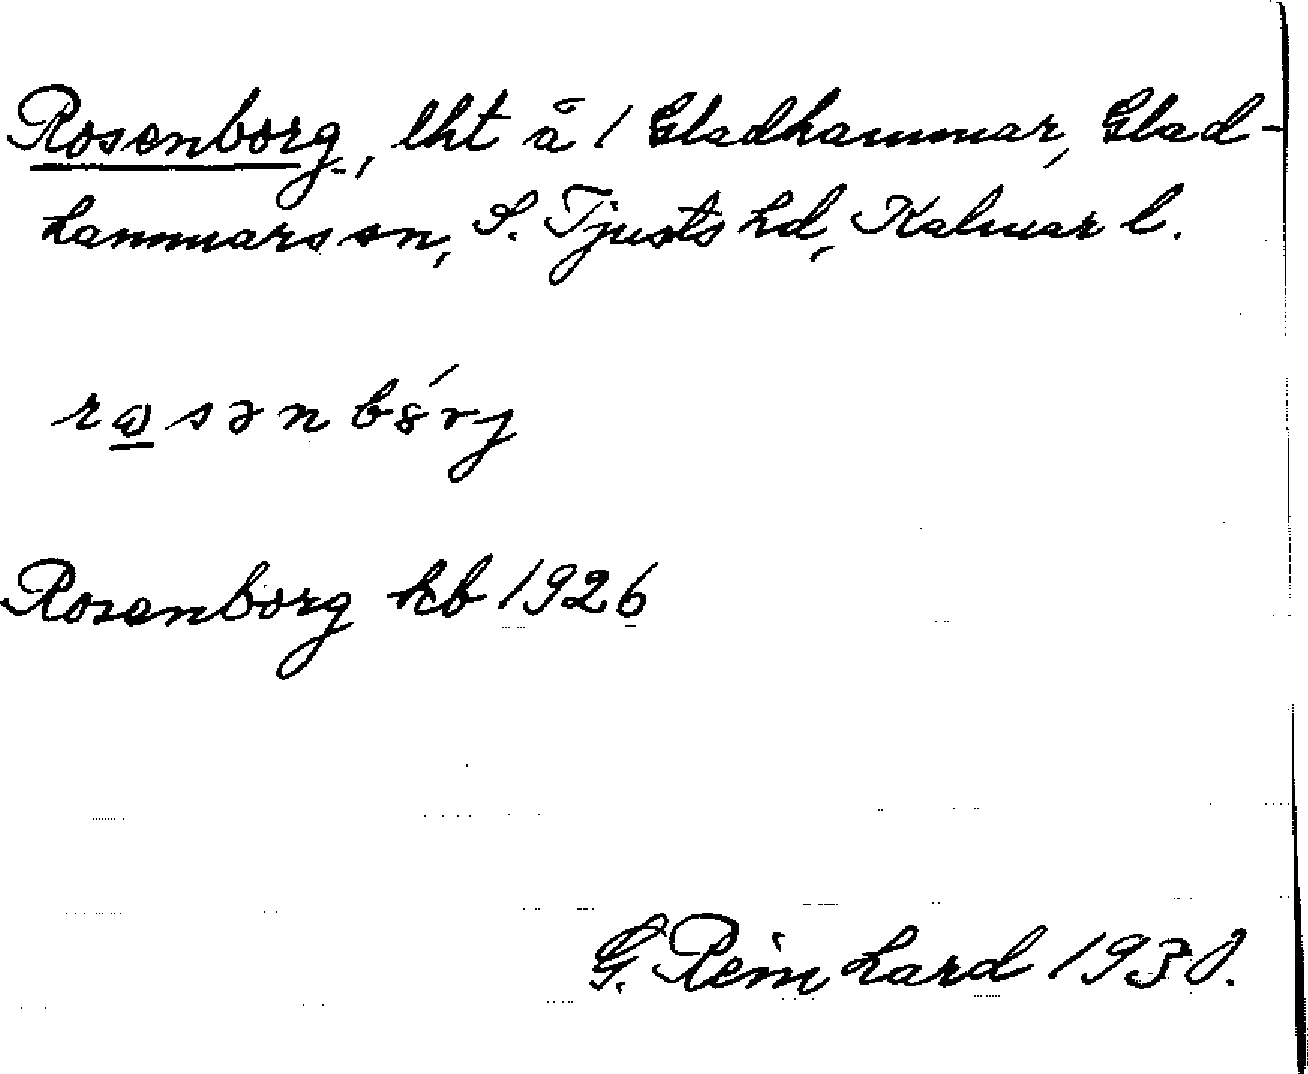 Rosenborg, lht å 1 Gladhammar, Glad-
hammars sn, S. Tjusts hd, Kalmar l.
Rosenborg kb 1926
G. Reinhard 1930.